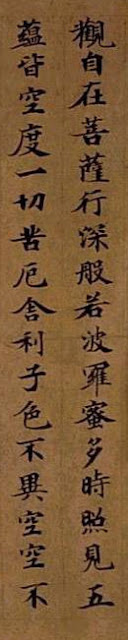 觀自在菩薩行深般若波羅蜜多時照見五
蘊皆空度一切苦厄舍利子色不異空空不